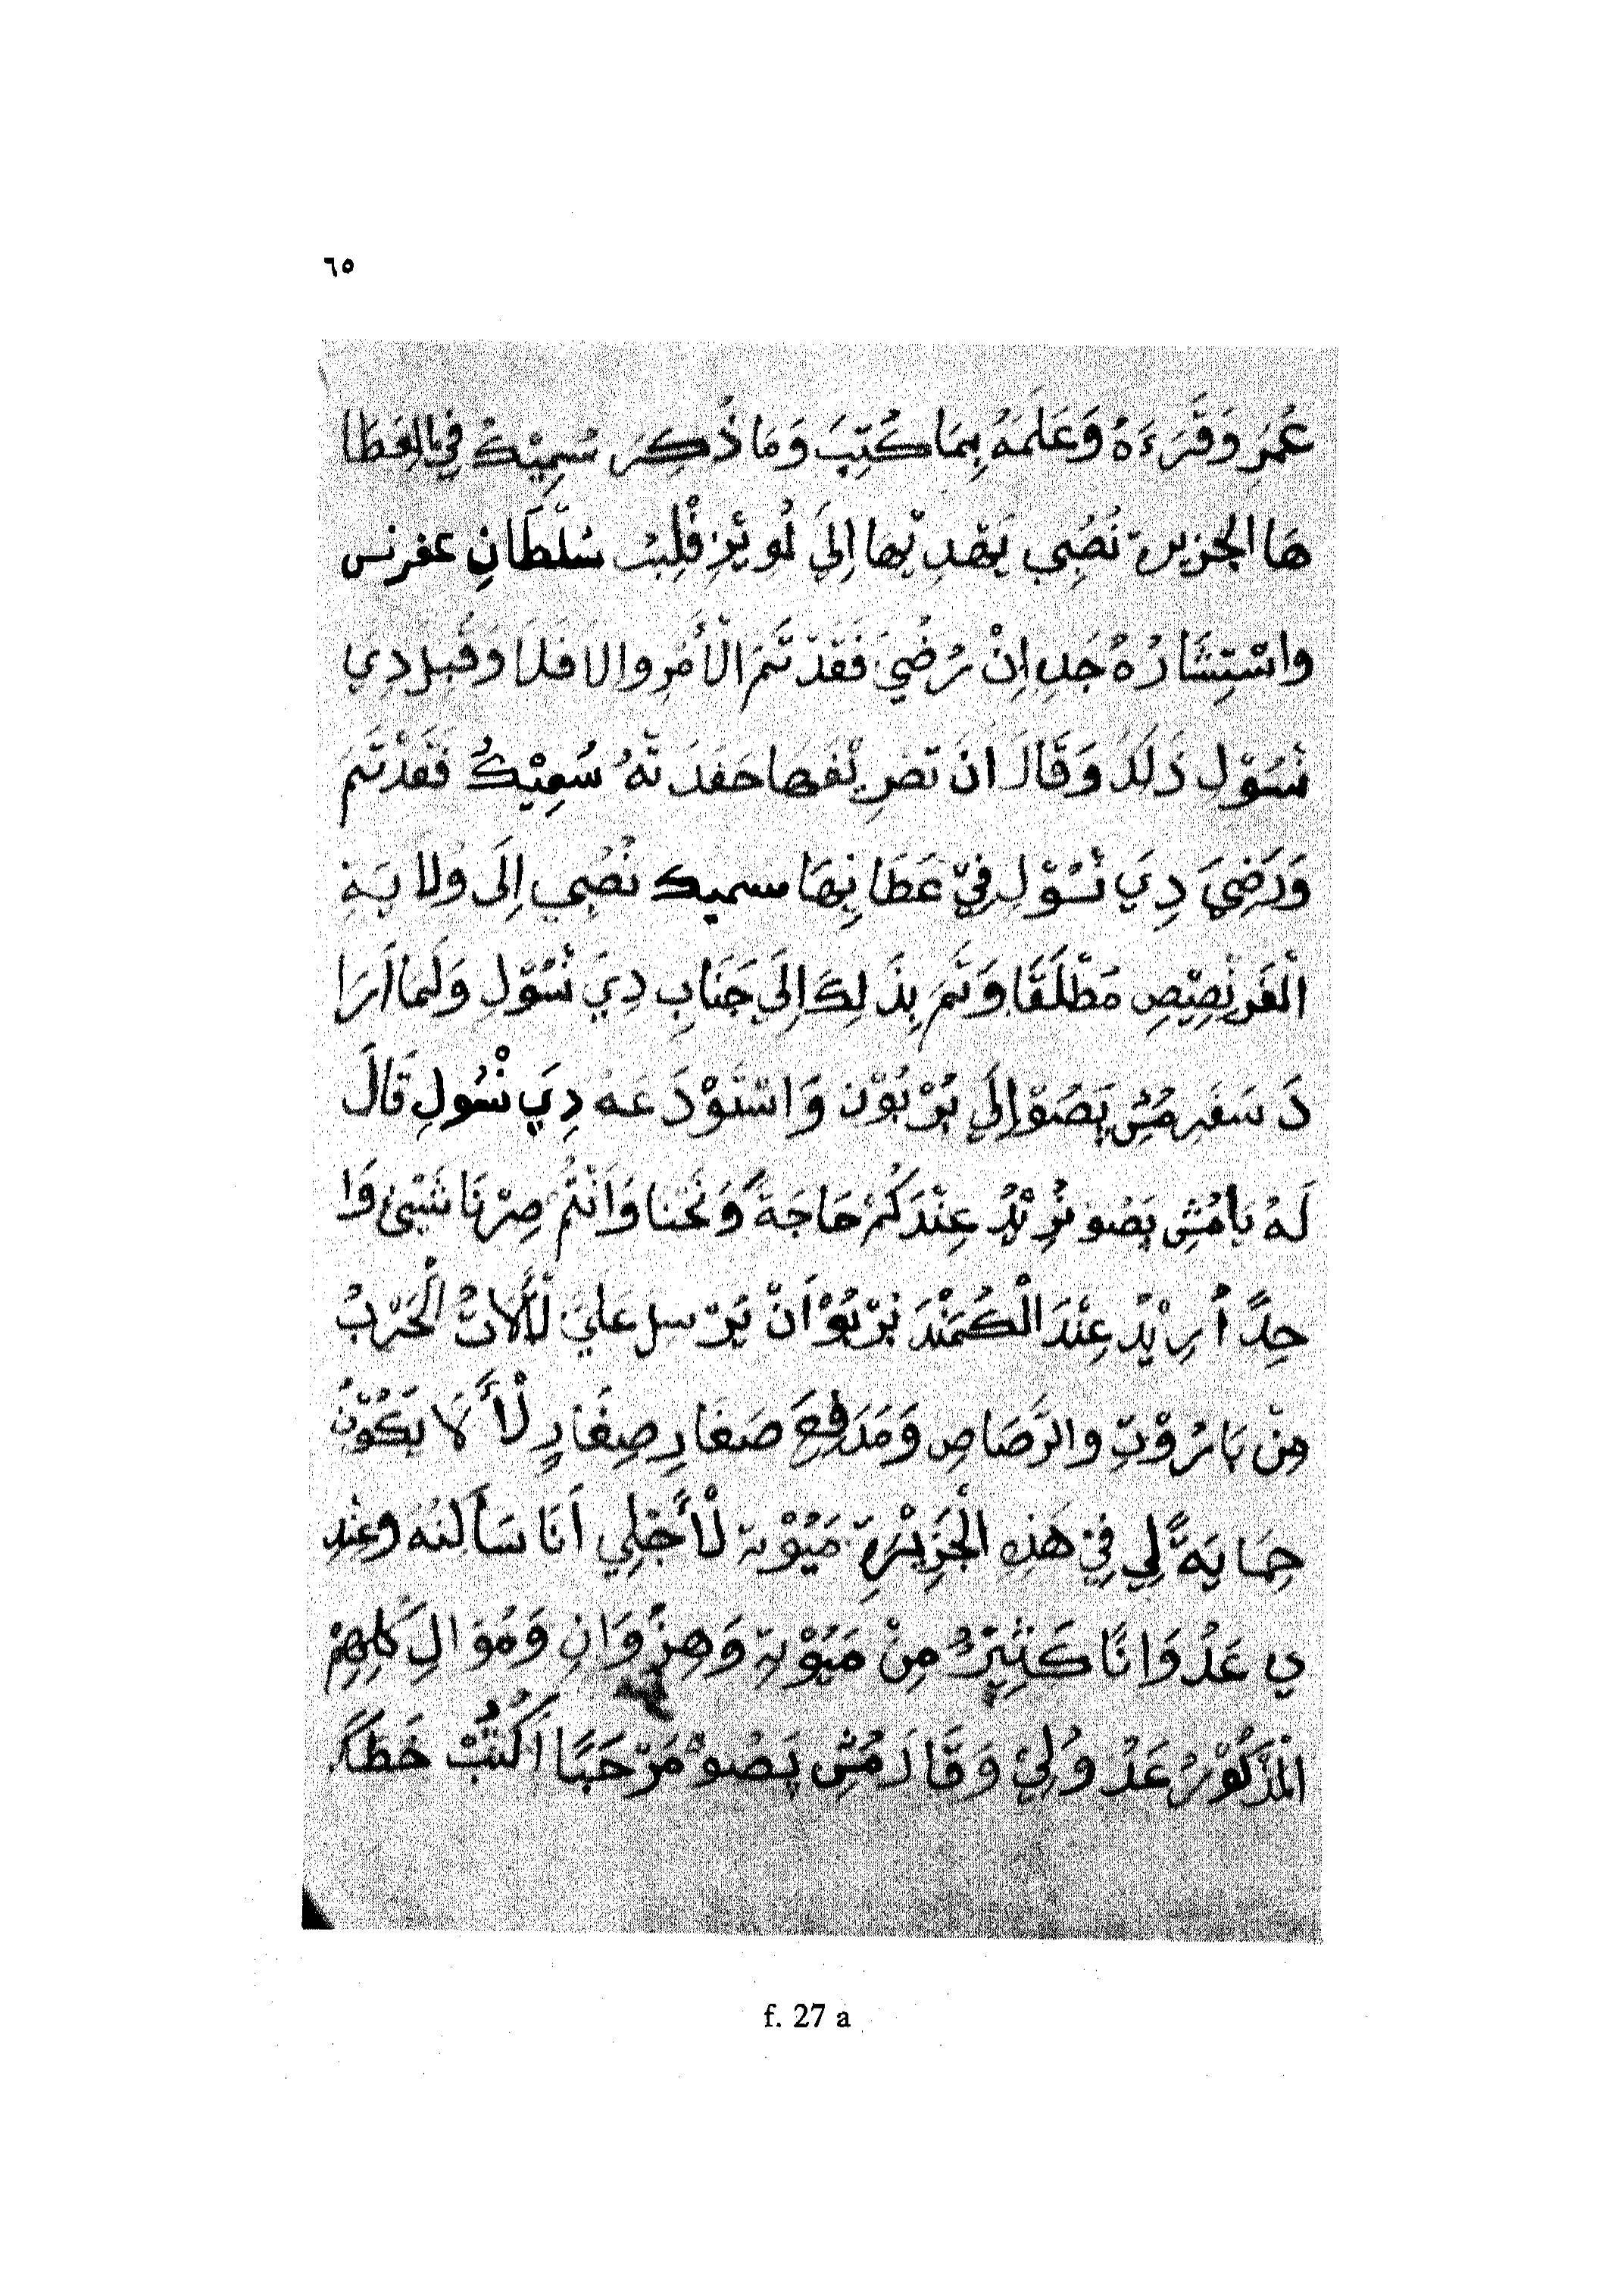 ٦٥
عُمَرِ وَقَرَءَهُ وَعَلَمَهُ بِمَا كَتِبَ وَمَا ذُكِرَ سُمِيْكُ فِي اعطا
هَا الجزيرة نُصُبِي يَهْدِيْهَا إِلَي لُوِيْزِ فْلِبْ سُلْطَانِ عفرنس
واسْتِشَارُهُ جَدِ اِنْ رُضِيَ فَقَدْ تَمَ الْأَمْرِ والا فَلَا وَقَبِلِ دِي
نْسُوْلِ ذَلَكَ وَقَالَ انَ تضر يفها حفدتهُ سُمِيْكُ فَقَدْتَمَ
وَرَضِيَ دِيَ نْسُوْلِ فِيْ عَطَانِهَا سميك نُصُبِي إِلَى وُلَايَةِ
الْفَرِنْصِيْصِ مَطْلَقًا وَتَمَ بِذَلِكَ إِلَي جَنَابِ دِيَ نْسُوْلِ وَلَمَا اَرَا
دَ سَفَرِ مُشِ پَصُوْ إِلَي بُرْبُوْن وَاسْتَوْدَعَهُ دِيَ نْسُولِ قَالَ
لَهُ يَا مُشِ پَصُو نُرِيْدُ عِنْدَكُمْ حَاجَةً وَنَحْنَا وَاَنْتُمْ صِرْنَا شَيْئ وَا
حِدً اُرِيْدُ عِنْدَ الْكُمَنْدَ بُرْبُوْ اَنْ يَرْسِل عَلَيْ لْأَلَاتُ الْحَرْبُ
مِنْ بَارُوْتِ والرَصَاصِ وَمَدَافِعَ صَغَارِ صِغَارٍ لْأَ لَا يَكُوْنُ
حِمَايَةً لِي فِيْ هَذِهِ الْجَزِيْرَةِ مَيُوْتة لْأَجْلِي اَنَا سَأَلْتُهُ وَعِنْدِ
ي عَدُوَانًا كَثِيْرُ مِنْ مَيُوْتة وَهِنْزُوَانِ وَمُوَالِ كُلِهِمْ
الْمَذْكُوْرُ عَدُوُ لِيْ وَقَالَ مُشِ پَصُوْ مَرْحَبًا اُكْتُبْ خَطَكَ
f. 27 a